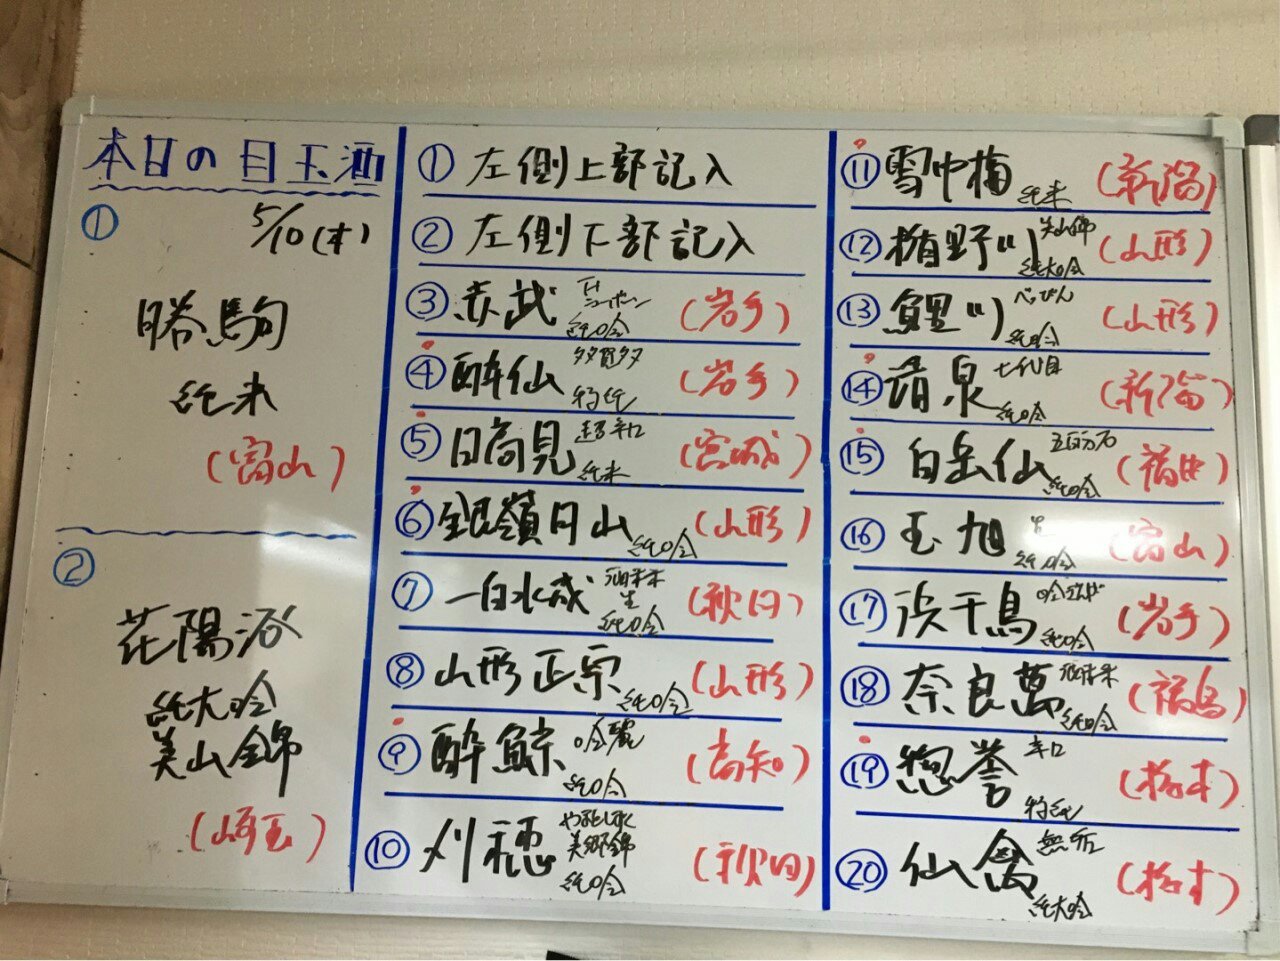 本日の目玉酒
① 5/10(木)
勝駒
純米
(富山)
②
花陽浴
純大吟
美山錦
(埼玉)
① 左側上部記入
② 左側下部記入
③ 赤武 純吟 (岩手)
④ 酔仙 多賀多 特純 (岩手)
⑤ 日高見 超辛口 純米 (宮城)
⑥ 銀嶺月山 純吟 (山形)
⑦ 一白水成 酒未来 生 純吟 (秋田)
⑧ 山形正宗 純吟 (山形)
⑨ 酔鯨 吟麗 純吟 (高知)
⑩ 刈穂 美郷錦 純吟 (秋田)
⑪ 雪中梅 純米 (新潟)
⑫ 楯野川 美山錦 純大吟 (山形)
⑬ 鯉川 べっぴん 純吟 (山形)
⑭ 清泉 七代目 純吟 (新潟)
⑮ 白岳仙 五百万石 純吟 (福井)
⑯ 玉旭 生 純吟 (富山)
⑰ 浜千鳥 吟ぎんが 純吟 (岩手)
⑱ 奈良萬 酒未来 純吟 (福島)
⑲ 惣誉 辛口 特純 (栃木)
⑳ 仙禽 無垢 純大吟 (栃木)